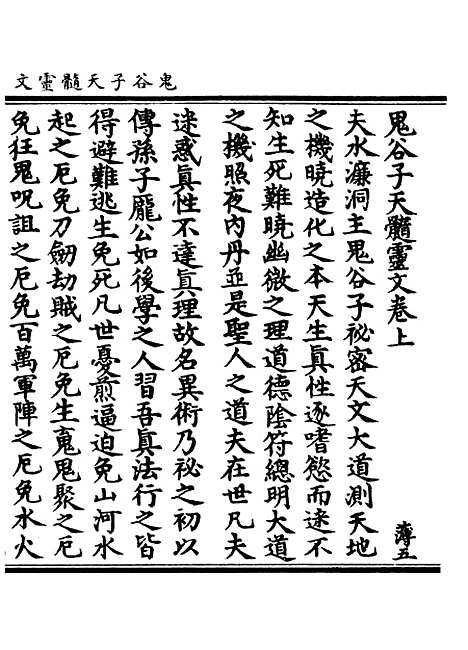 鬼谷子天髓靈文
鬼谷子天髓靈文卷上
薄五
夫水濂洞主鬼谷子祕密天文大道測天地
之機曉造化之本天生眞性逐嗜慾而迷不
知生死難曉幽微之理道德陰符緫明大道
之機照夜內丹並是聖人之道夫在世凡夫
迷惑眞性不達眞理故名異術乃祕之初以
傳孫子龐公如後學之人習吾眞法行之皆
得避難逃生免死凡世憂煎逼迫免山河水
起之厄免刀劒劫賊之厄免生寃鬼聚之厄
免狂鬼呪詛之厄免百萬軍陣之厄免水火